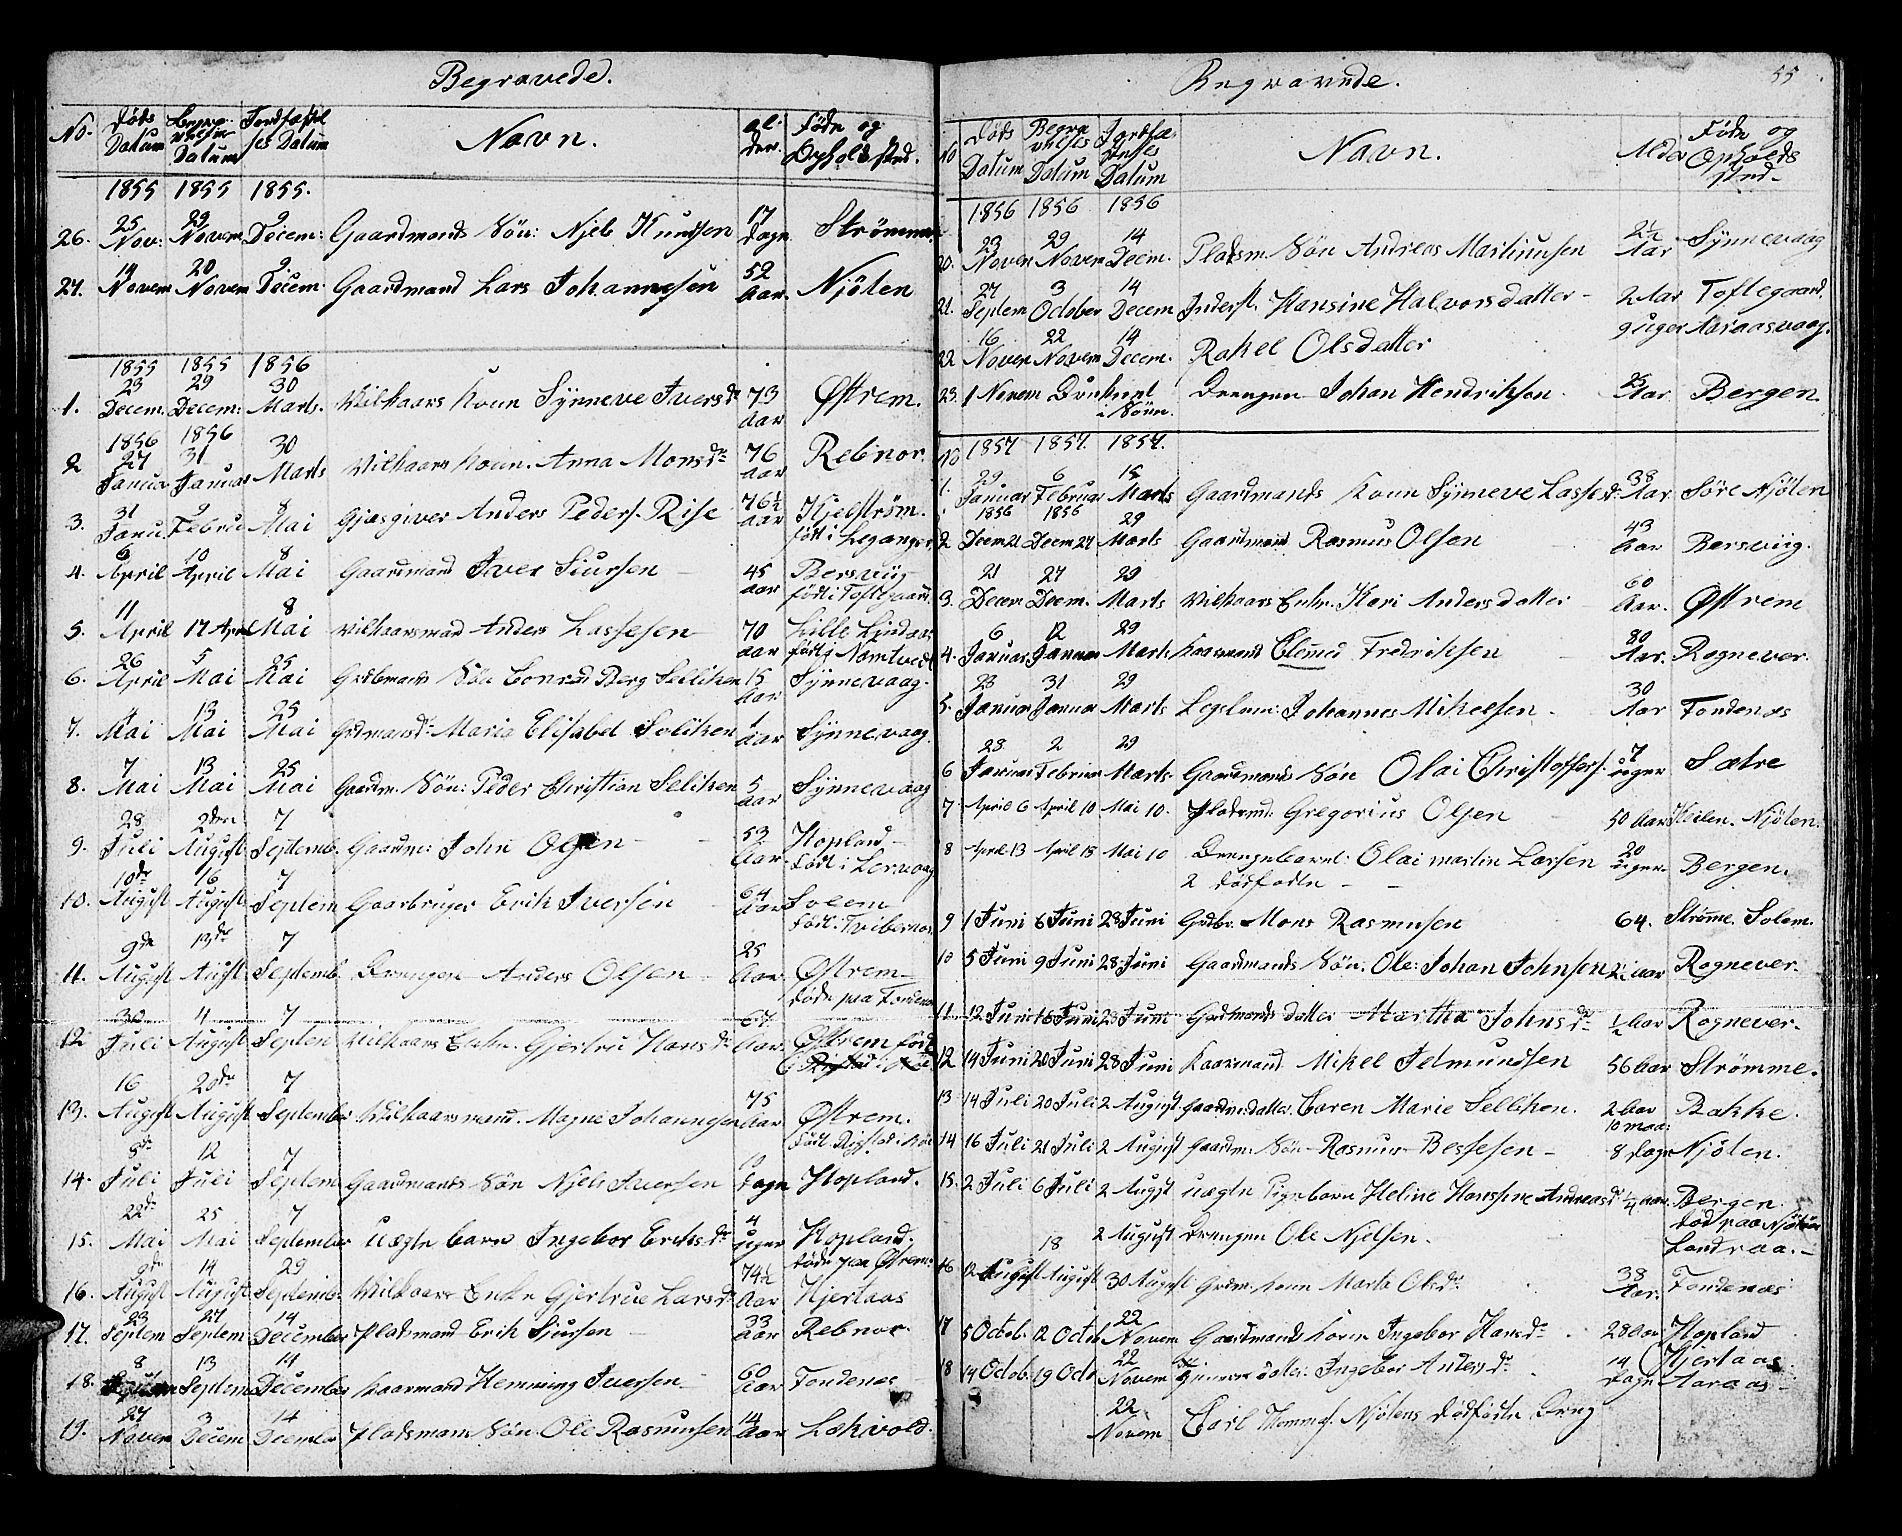 Begravede.
No. Døds Datum Begravelses Datum Jordfæstelses Datum Navn. Alder. Føde og Opholdssted.
1855 1855 1855.
26. 25 Nov: 29 Novem 2 Decem: Gaardmands Søn: Njels Knudsen 17 Dage Strømme
27. 14 Novem 20 Novem 2 Decem. Gaardmand Lars Johannesen 52 Aar. Njöten
1855 1855 1856
1. 23 Decem. 29 Decem: 30 Marts. Vilkaars Kone Synneve Ivers dr 73 Aar Østrem.
1856 1856
2 27 Januar 31 Januar 30 Marts Vilkaars Kone. Anna Mons dr 76 Aar Rebnor.
3. 31 Janu. 9 Februa 8 Mai Gjæsgiver Anders Peders. Rise 76½ Aar Kjelstrøm. født i Leganger
4. 6 April 10 April 8 Mai Gaardmand Iver Siursen 45 Aar Bersviig født i Toftegaard
5. 11 April 17 April 8 Mai Vilkaarsmand Anders Lassesen 70 Aar Lille Lindaas født i Namtvedt
6. 26 April 5 Mai 25 Mai Grdbmand Søn Conrad Berg Selliken 15 Aar Synnevaag.
7. 4 Mai 13 Mai 25 Mai Grdmands dr Maria Elisabet Seliken 1 Aar Synnevaag.
8. 7 Mai 13 Mai 25 Mai Gaardm. Søn: Peder Christian Seliken 5 Aar Synnevaag
9. 28 Juli 2den August 7 Septemb. Gaardm: John Olsen 53 Aar Hopland født i Lervaag
10. 10de August 16 August 7 Septem Gaarbruger Erik Iversen 64 Aar Solem født
11. 9de August 13de August 7 Septemb. Drengen Anders Olsen 25 Aar Østrem døde paa Fondenes
12 30 Juli 4 August 7 Septem Vilkaars Enke. Gjertru Hans dr 67 Aar. Østrem født
13. 16 August 20de August 7 September Vilkaarsmand. Magne Johannesen 75 Aar Østrem.
14. 8de Juli 12 Juli 7 Septem Gaardmands Søn Njels Iversen Dage Hopland.
15. 22de Mai 25 Mai 7 September Uægte Barn Ingebor Eriks dr 4 Uger Hopland. døde paa Østrem
16. 9de August 14 August 29 Septemb. Vilkaars Enke Gjertrue Lars dr 74½ Aar Hjertaas
17. 23 Septem 27 Septem 14 December Pladsmand Erik Sjursen 33 Aar Rebnor.
18. 8 Septem 13 Septem 14 December Kaarmand Hemming Iversen 60 Aar Fondenes
19. 27 Novem 3 Decem 14 Decembr Pladsmans Søn. Ole Rasmusen 14 Aar Lekvold.
Begravede.
55
No Døds Datum Begravelses Datum Jordfæstelses Datum Navn. Alder Føde og Opholdssted.
1856 1856 1856
20. 23 Novem 29 Novem 14 Decem. Pladsm Søn Andreas Martinusen 2½ Aar Synnevaag
21. 27 Septem 3 October 14 Decem Inderst. Hansine Halvorsdatter 2 Aar Toftegaard.
22. 16 Novem 22 Novem 14 Decem. Rakel Olsdatter 9 uger Aaraasvaag.
23. 1 Novem Druknet i Søen. Drengen Johan Hendriksen 25 Aar Bergen.
No 1857 1857. 1857.
1. 29 Januar 6 Februar 15 Marts Gaardmands Kone Synneve Lasses dr 38 Aar Søre Njöten
1856 1856
2 Decem 21 Decem 27 29 Marts Gaardmand Rasmus Olsen 43 Aar Bersviig.
3. 21 Decem 27 Decem. 29 Marts Vilkaars Enke. Kari Anders datter 60 Aar. Østrem
4. 6 Januar 12 Januar 29 Marts Kaarmand Clemed Fredriksen 80 Aar. Rognever.
5. 23 Januar 31 Januar 29 Marts Legslem: Johannes Mikelsen 30 Aar Fondenes
6 28 Januar 2 Februar 29 Marts. Gaardmands Søn Olai Christoffers. 7 uger Sætre
7 April 6 April 10 Mai 10. Pladsmd. Gregorius Olsen 50 Aar Keilen. Njöten.
8 April 13 April 18 Mai 10 Drengebarnet: Olai Martin Larsen 20 uger. Bergen.
2 dødfødte
9 1 Juni 6 Juni 28 Juni Grdbr. Mons Rasmusen 64. Strømme Solem.
10 5 Juni 9 Juni 28 Juni Gaardmands Søn. Ole: Johan Johnsen 2½ Aar Rognever.
11 12 Juni 16 Juni 23 Juni Grdmands datter Martha Johns dr ½ Aar Rognever.
12 14 Juni 20 Juni 28 Juni Kaarmand Mikel Jelmundsen 56 Aar Strømme.
13 14 Juli 20 Juli 2 August Gaardmdatter. Caren Marie Selliken. 2 Aar 10 maa: Bakke.
14 16 Juli 21 Juli 2 August Gaardm: Søn Rasmus Bessesen 8 Dage Njöten.
15. 2 Juli 6 Juli 2 August uægte Pigebarn Heline Hansine Andreas dr ¼ Aar. Bergen. død paa Njöten
2 August Drengen Ole Njelsen. Landraa.
16 12 August 18 August 30 August Grdm. Kone Marta Ols dr 38 Aar. Fondenæs
17 5 Octob. 12 Octob 22 Novem Gaardmands Kone Ingebor Hans dr 28 Aar Hopland
18 14 Octob. 19 Octo 22 Novem datter. Ingebor Anders dr 14 Dage Hjertaas Aaraas
22 Novem Carl Thommes. Njötens Dødfødte Dreng